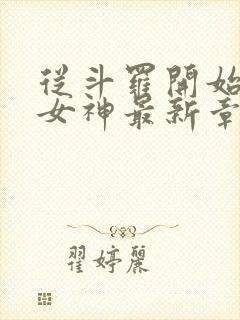 從斗羅開始
女神最新章
翟婷麗